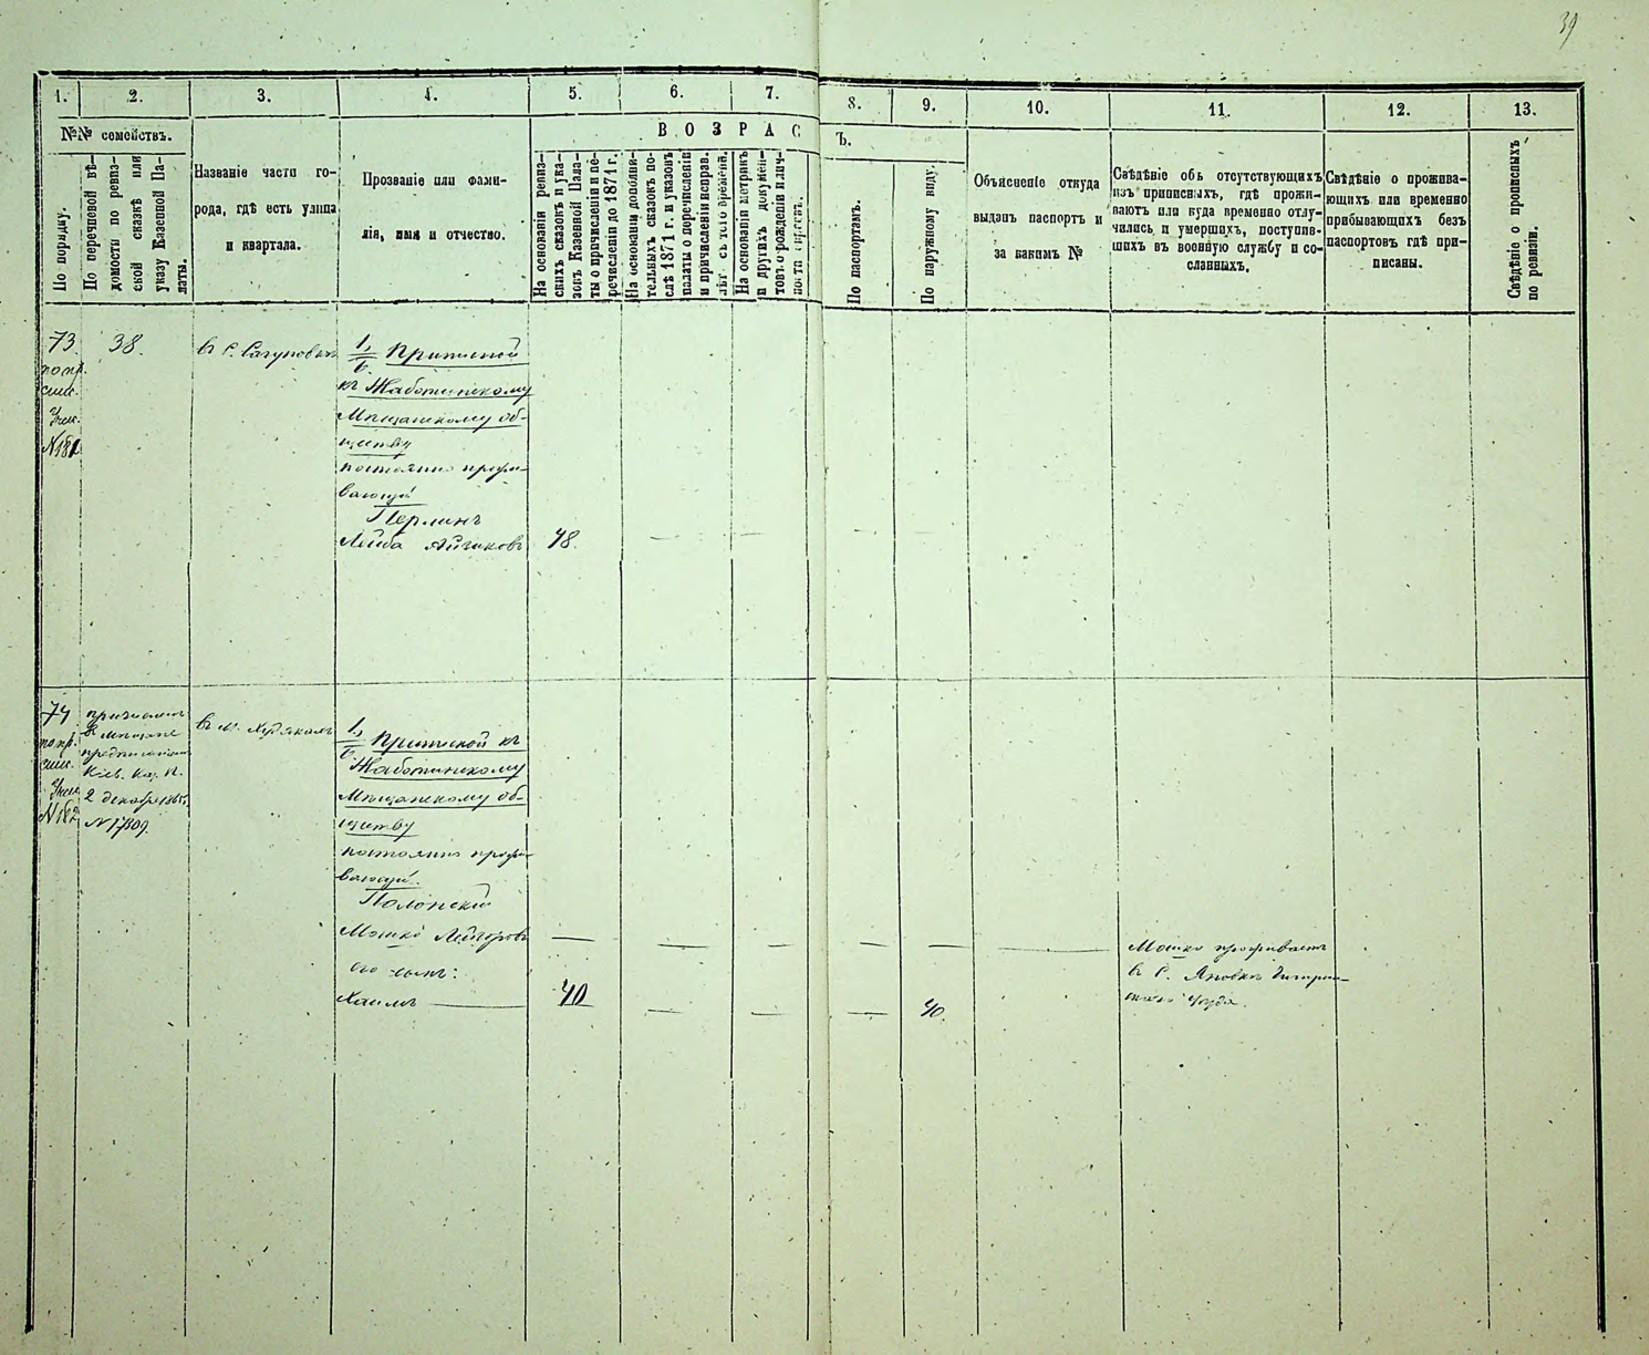 39
1.
2.
3.
4.
5.
6.
7.
8.
9.
10.
11.
12.
13.
№№ семействъ.
По порядку.
По перечневой вѣ-
домости по ревиз-
ской сказкѣ или
указу Казенной Па-
латы.
Названіе части го-
рода, гдѣ есть улица
и квартала.
Прозваніе или фами-
лія, имя и отчество.
ВОЗРАС
Ъ.
На основаніи ревиз-
скихъ сказокъ и ука-
зовъ Казенной Пала-
ты о причисленіи и пе-
речисленіи до 1871 г.
На основаніи дополни-
тельныхъ сказокъ по-
слѣ 1871 г. и указовъ
палаты о перечисленіи
и причисленіи исправ.
лѣт. съ того времени.
На основаніи метрикъ
и другихъ докумен-
товъ о рожденіи или ч-
По паспортамъ.
По наружному виду.
Объясненіе откуда
выданъ паспортъ и
за какимъ №
Свѣдѣніе объ отсутствующихъ
изъ приписныхъ, гдѣ прожи-
ваютъ или куда временно отлу-
чились и умершихъ, поступив-
шихъ въ военную службу и со-
сланныхъ.
Свѣдѣніе о прожива-
ющихъ или временно
прибывающихъ безъ
паспортовъ гдѣ при-
писаны.
Свѣдѣніе о прописныхъ
по ревизіи.
73
по пр.
спис.
38.
въ с. Сагуновкѣ
1,
Приписной
къ Жаботинскому
Мѣщанскому об-
ществу
постоянно прожи-
вающій
Перлинъ
Лейба Айзиковъ
48.
74
по пр.
спис.
причисленъ
въ мѣщане
предписаніемъ
Кіев. Каз. П.
2 декабря 1865
№ 17809.
въ м.
1,
Приписной къ
Жаботинскому
Мѣщанскому об-
ществу
постоянно прожи-
вающій.
Полонскій
Мошко
его сынъ:
Хаимъ
40
40.
Мошко проживаетъ
въ с. Яновкѣ Чигирин-
скаго уѣзда.